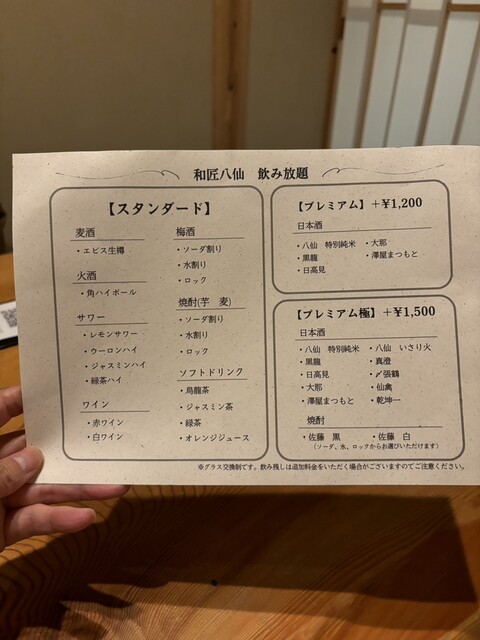 和匠八仙 飲み放題
【スタンダード】
麦酒
・エビス生樽
火酒
・角ハイボール
サワー
・レモンサワー
・ウーロンハイ
・ジャスミンハイ
・緑茶ハイ
ワイン
・赤ワイン
・白ワイン
梅酒
・ソーダ割り
・水割り
・ロック
焼酎(芋 麦)
・ソーダ割り
・水割り
・ロック
ソフトドリンク
・烏龍茶
・ジャスミン茶
・緑茶
・オレンジジュース
【プレミアム】+¥1,200
日本酒
・八仙 特別純米
・黒龍
・日高見
・大那
・澤屋まつもと
【プレミアム極】+¥1,500
日本酒
・八仙 特別純米
・黒龍
・日高見
・大那
・澤屋まつもと
・八仙 いさり火
・真澄
・〆張鶴
・仙禽
・乾坤一
焼酎
・佐藤 黒 ・佐藤 白
(ソーダ、水、ロックからお選びいただけます)
※グラス交換制です。飲み残しは追加料金をいただく場合がございますのでご注意ください。